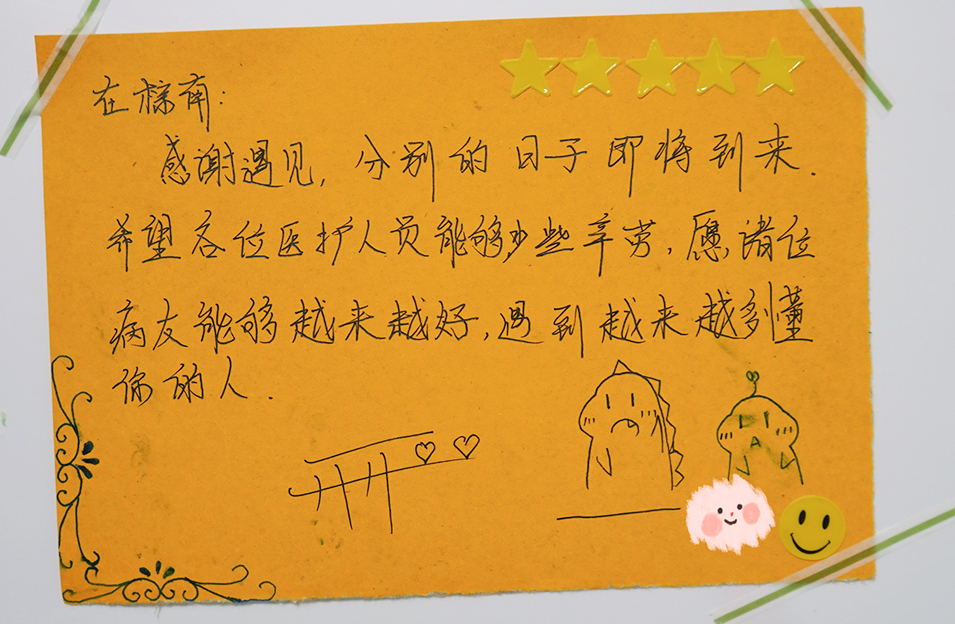 在棕南：
感谢遇见，分别的日子即将到来．
希望各位医护人员能够少些辛劳，愿诸位
病友能够越来越好，遇到越来越多懂
你的人．